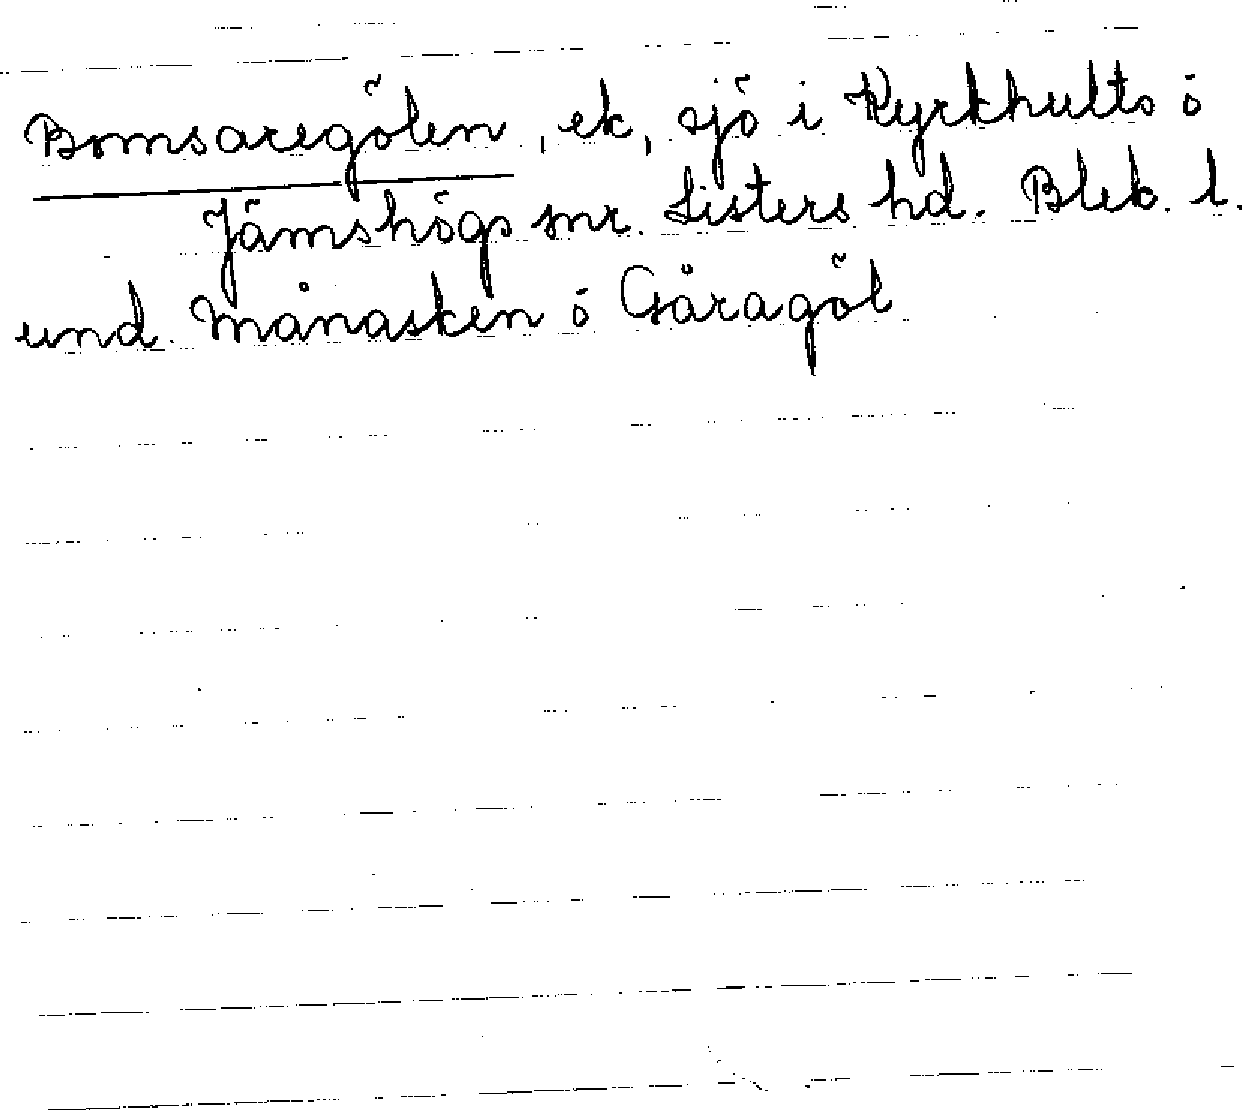 Bomsaregölen, ek, sjö i Kyrkhults ó
Jämshögs snr. Listers hd. Blek. l.
und. Månasken ó Gåragöl